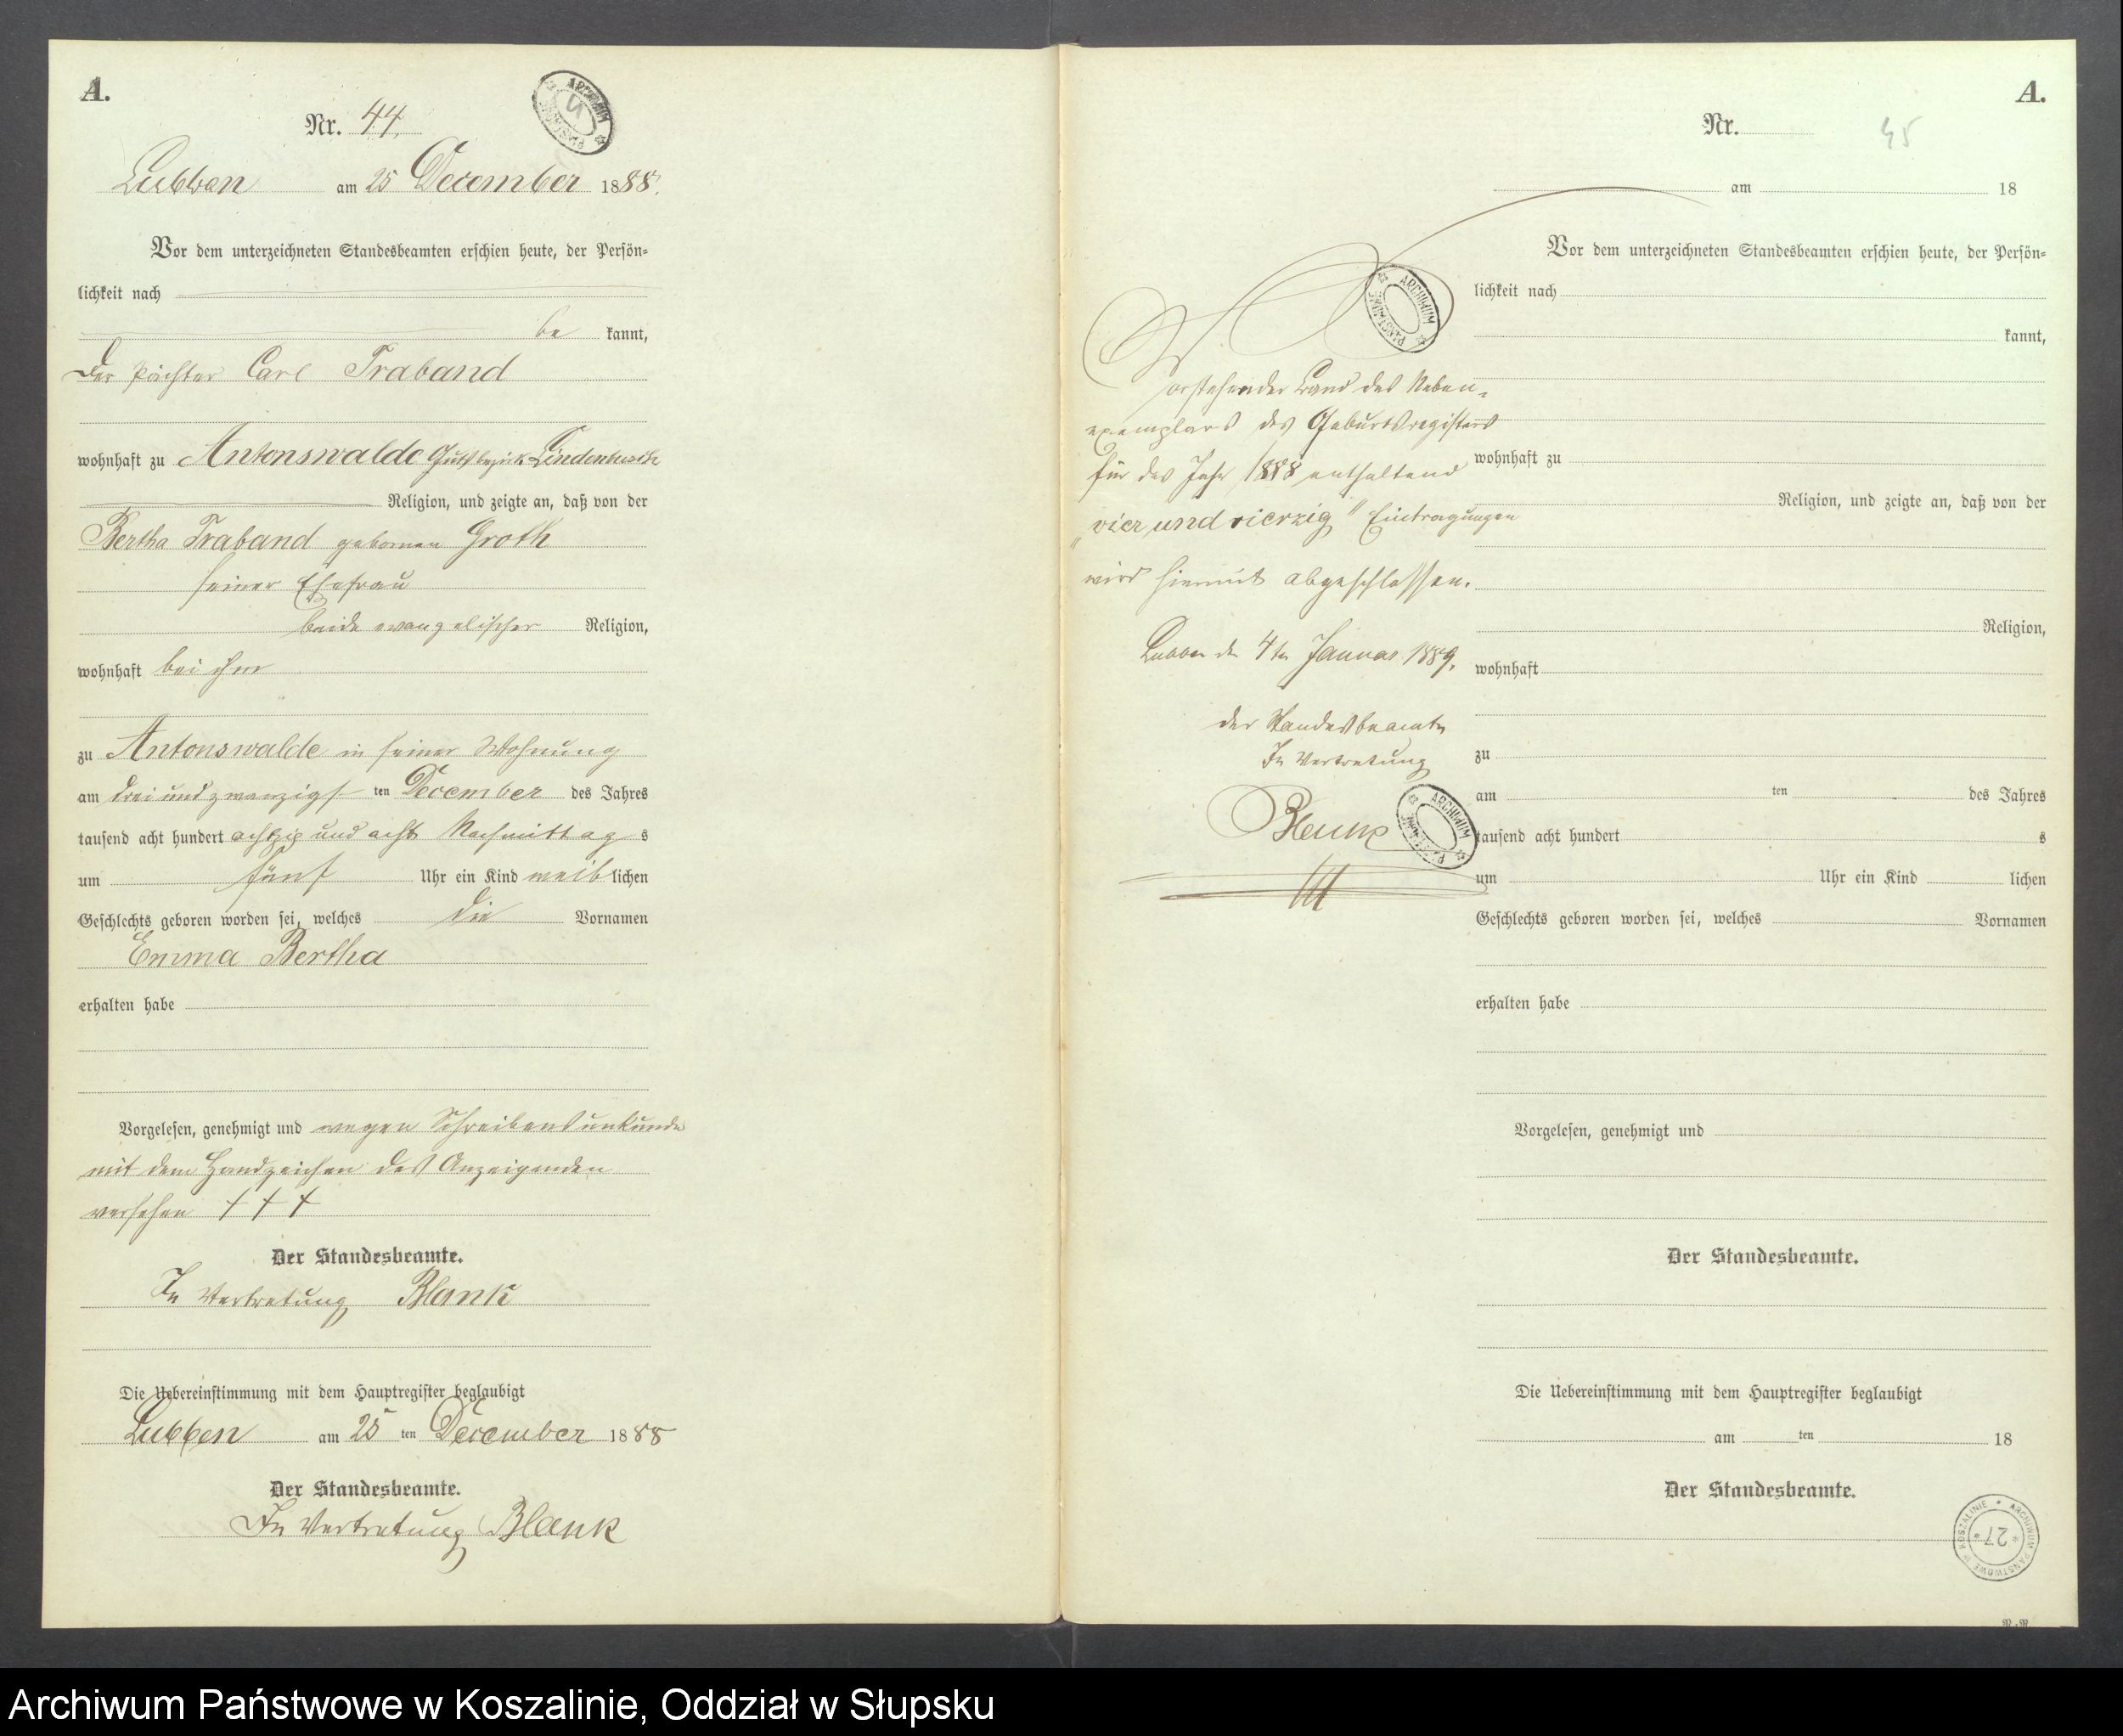 A.
Nr. 44.
ARCHIWUM PAŃSTWOWE
Lubben am 25 December 1888.
Vor dem unterzeichneten Standesbeamten erschien heute, der Persön-
lichkeit nach
be kannt,
der Pächter Carl Traband
wohnhaft zu Antonswalde Gutsbezirk
Religion, und zeigte an, daß von der
Bertha Traband geborenen Groth
seiner Ehefrau
beide evangelischer Religion,
wohnhaft bei ihm
zu Antonswalde in seiner Wohnung
am dreiundzwanzigs ten December des Jahres
tausend acht hundert achtzig und acht Nachmittag s
um fünf Uhr ein Kind weiblichen
Geschlechts geboren worden sei, welches die Vornamen
Emma Bertha
erhalten habe
Vorgelesen, genehmigt und wegen Schreibensunkunde
mit dem Handzeichen des Anzeigenden
versehen † † †
Der Standesbeamte.
In Vertretung Blank
Die Uebereinstimmung mit dem Hauptregister beglaubigt
Lubben am 25 ten December 1888
Der Standesbeamte.
In Vertretung Blank
A.
Nr.
45
am 18
Vor dem unterzeichneten Standesbeamten erschien heute, der Persön-
lichkeit nach
kannt,
wohnhaft zu
Religion, und zeigte an, daß von der
Religion,
wohnhaft
zu
am ten des Jahres
tausend acht hundert s
um Uhr ein Kind lichen
Geschlechts geboren worden sei, welches Vornamen
erhalten habe
Vorgelesen, genehmigt und
Der Standesbeamte.
Die Uebereinstimmung mit dem Hauptregister beglaubigt
am ten 18
Der Standesbeamte.
ARCHIWUM PAŃSTWOWE
Vorstehender Band des Neben-
exemplars des Geburtsregisters
für das Jahr 1888 enthaltend
"vier und vierzig" Eintragungen
wird hiermit abgeschlossen.
Lubben den 4ten Januar 1889.
der Standesbeamte
In Vertretung
Blank
ARCHIWUM PAŃSTWOWE
ARCHIWUM PAŃSTWOWE W KOSZALINIE
27
Archiwum Państwowe w Koszalinie, Oddział w Słupsku